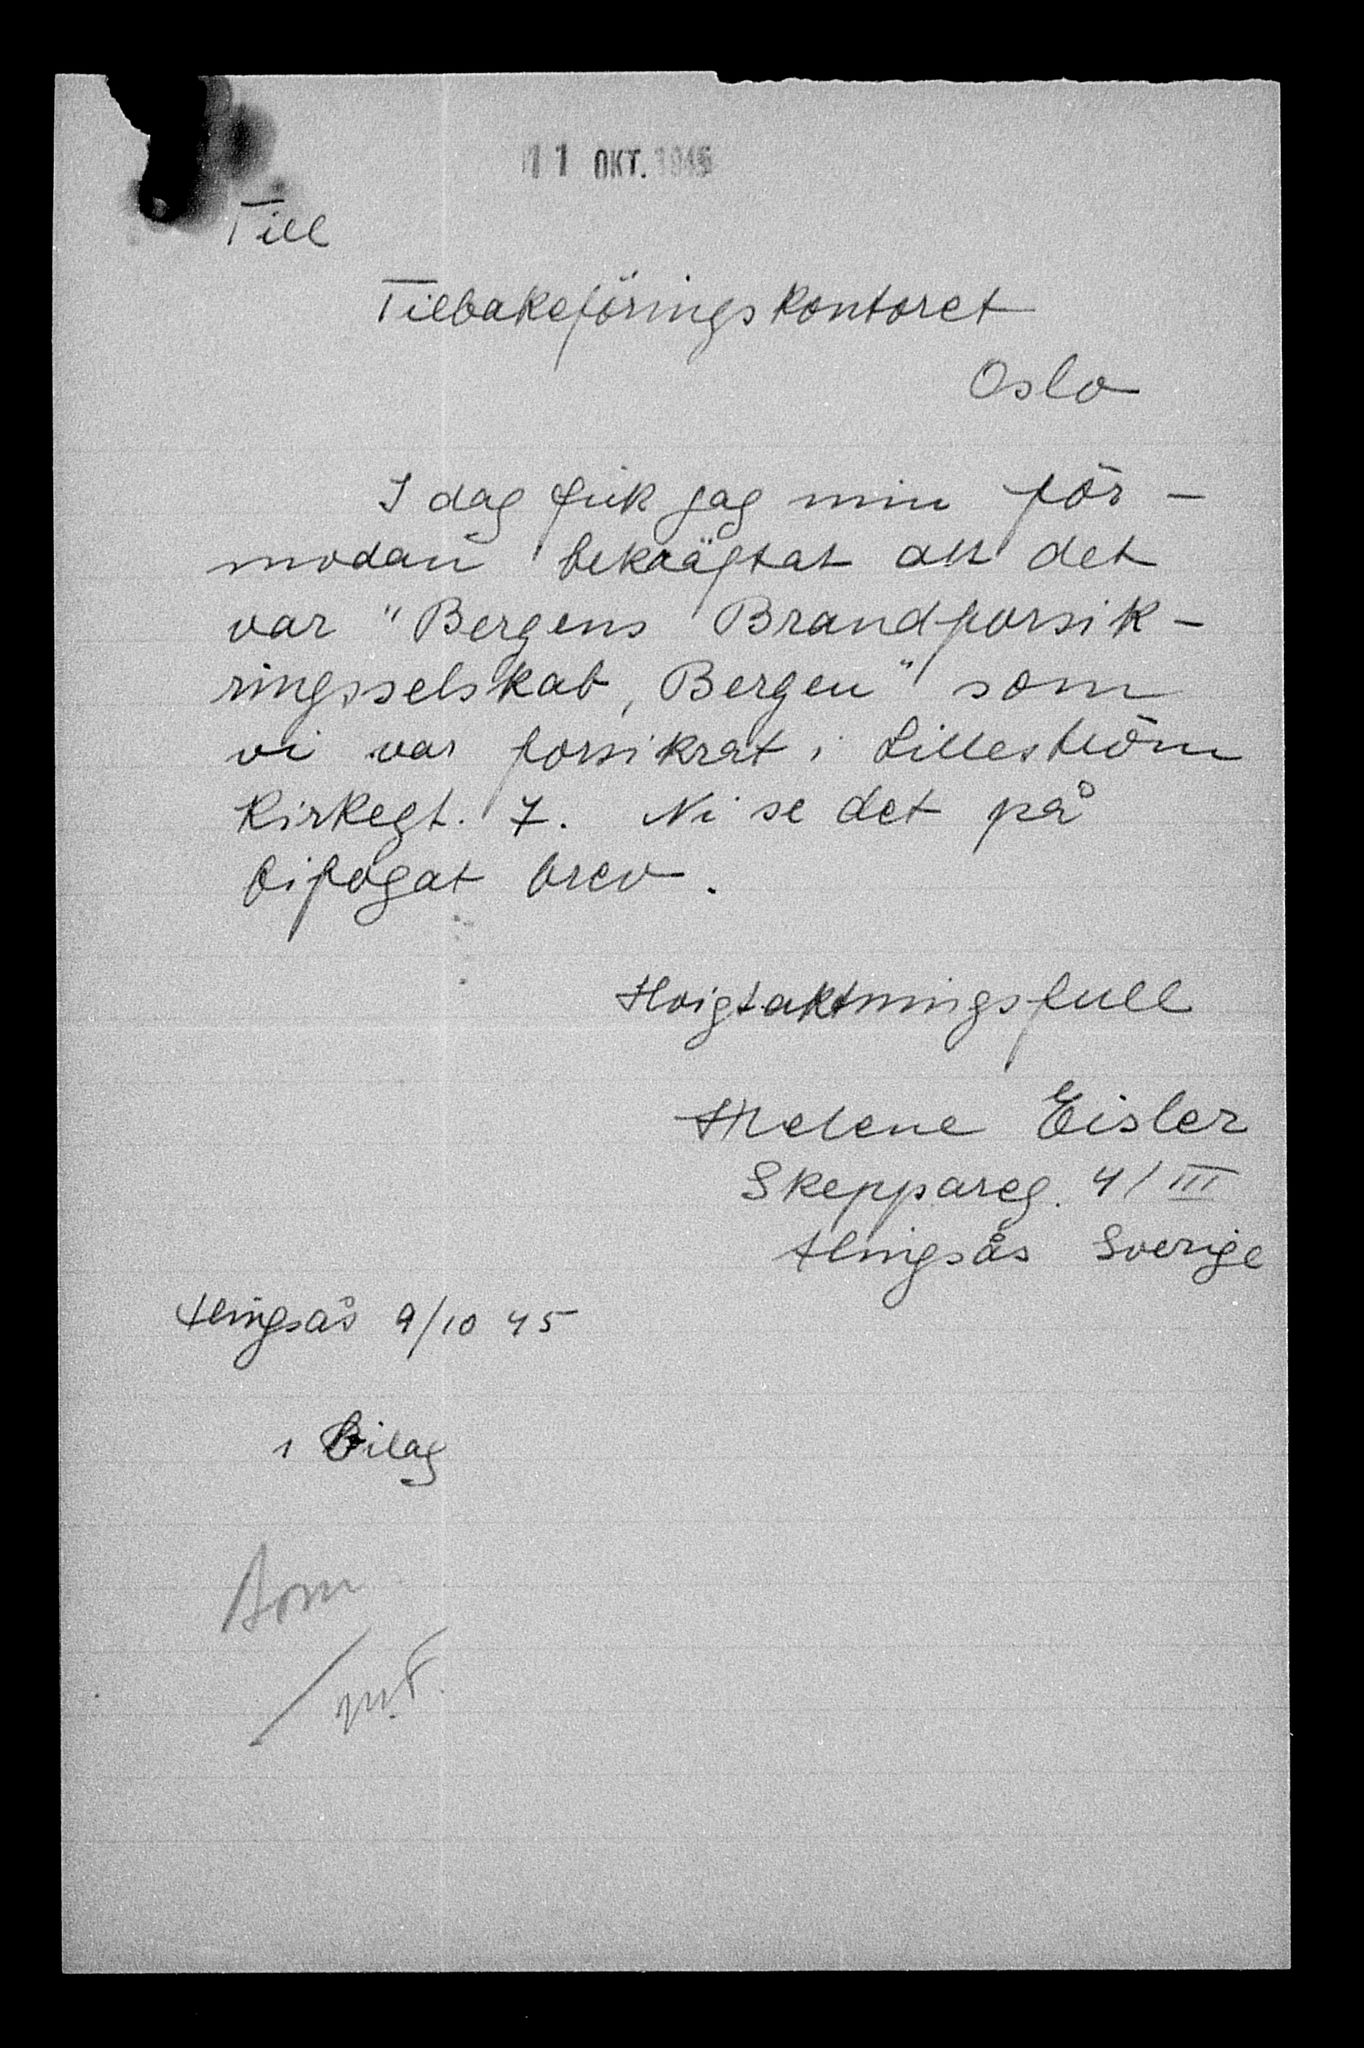 11 OKT. 1945
Till
Tilbakeföringskontoret
Oslo
I dag fik jag min för-
modan bekräftat att det
var "Bergens Brandforsik-
ringsselskab, Bergen" som
vi var forsikrat i Lilleström
Kirkegt. 7. Ni se det på
bifogat brev.
Hoigtaktningsfull
Helene Eisler
Skeppareg. 4/III
Alingsås Sverige
Alingsås 9/10 45
1 Bilag